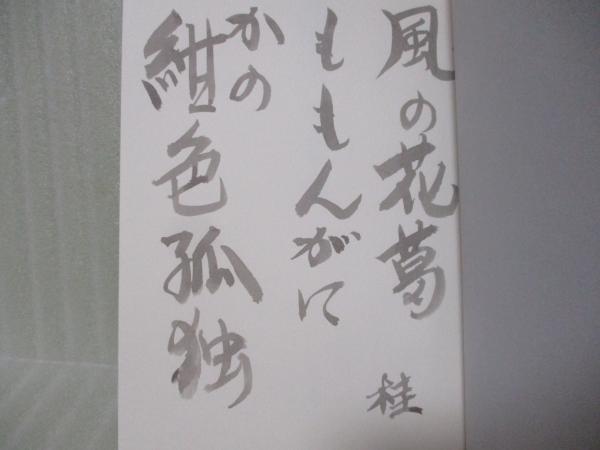 風の花葛
ももんがに
かの
紺色孤独
桂